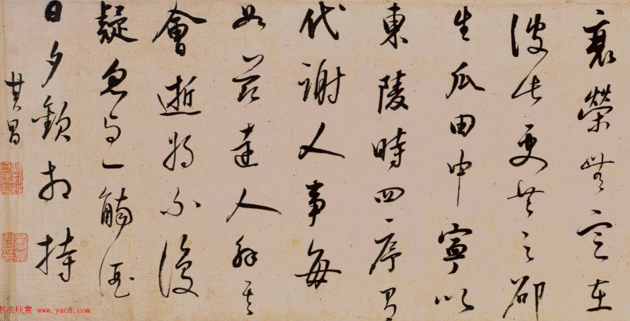 衰榮無定在
彼此更共之邵
生瓜田中寧以
東陵時四序
代謝人事每
如茲達人解其
會逝將不復
疑忽與一觴酒
日夕歡相持
其昌
书法欣赏 www.yac8.com